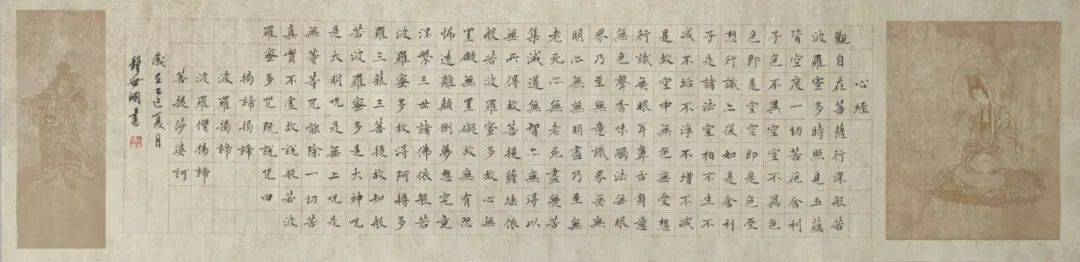 心經
觀自在菩薩行深般若
波羅蜜多時照見五蘊
皆空度一切苦厄舍利
子色不異空空不異色
色即是空空即是色受
想行識亦復如是舍利
子是諸法空相不生不
滅不垢不淨不增不減
是故空中色無受想
行識無眼耳鼻舌身意
無色聲香味觸法無眼
界乃至無意識界無無
明亦無無明盡乃至無
老死亦無老死盡無苦
集滅道無智亦無得以
無所得故菩提薩埵依
般若波羅蜜多故心無
罣礙無罣礙故無有恐
怖遠離顛倒夢想究竟
涅槃三世諸佛依般若
波羅蜜多故得阿耨多
羅三藐三菩提故知般
若波羅蜜多是大神咒
是大明咒是無上咒是
無等等咒能除一切苦
真實不虛故說般若波
羅蜜多咒既說咒曰
揭諦揭諦
波羅揭諦
波羅僧揭諦
菩提莎婆訶
歲在乙巳夏月
明書